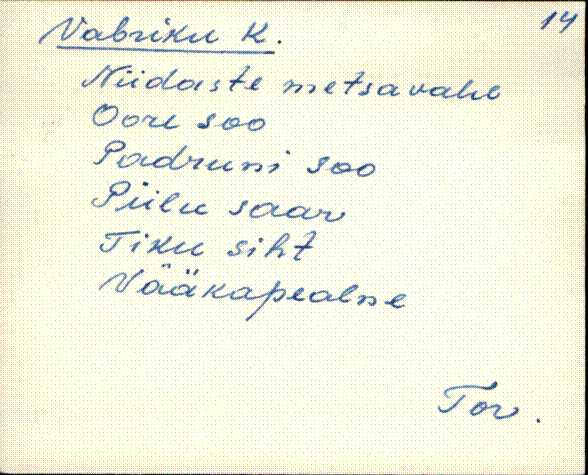 14
Vabriku K.
Niidaste metsavahe
Oore soo
Padruni soo
Piilu saar
Tiku siht
Vääkapealne
Tor.